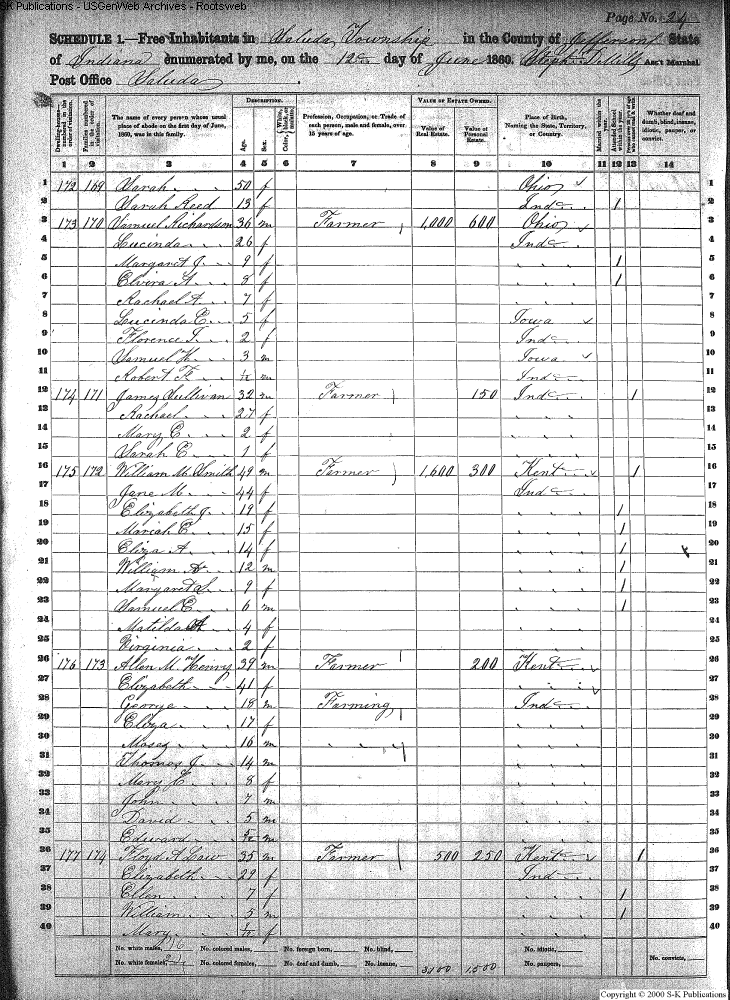 S-K Publications - USGenWeb Archives - Rootsweb
Page No. 24
SCHEDULE 1.—Free Inhabitants in Saluda Township in the County of Jefferson State
of Indiana enumerated by me, on the 12th day of June 1860. Ass't Marshal
Post Office Saluda
Dwelling-houses numbered in the order of visitation.
Families numbered in the order of visitation.
The name of every person whose usual place of abode on the first day of June, 1860, was in this family.
DESCRIPTION.
Age.
Sex.
Color, White, black, or mulatto.
Profession, Occupation, or Trade of each person, male and female, over 15 years of age.
VALUE OF ESTATE OWNED.
Value of Real Estate.
Value of Personal Estate.
Place of Birth, Naming the State, Territory, or Country.
Married within the year.
Attended School within the year.
Whether deaf and dumb, blind, insane, idiotic, pauper, or convict.
1 2 3 4 5 6 7 8 9 10 11 12 13 14
1 172 169 Sarah 50 f Ohio 1
2 Sarah Reed 13 f Ind 1 2
3 173 170 Samuel Richardson 36 m Farmer 1,000 600 Ohio 3
4 Lucinda 26 f Ind 4
5 Margaret J. 9 f 1 5
6 Elvira A. 8 f 1 6
7 Rachael A. 7 f 7
8 Lucinda C. 5 f Iowa 8
9 Florence I. 2 f Ind 9
10 Samuel H. 3 m Iowa 10
11 Robert F. m Ind 11
12 174 171 James Sullivan 32 m Farmer 150 Ind 1 12
13 Rachael 27 f 13
14 Mary C. 2 f 14
15 Sarah C. 1 f 15
16 175 172 William M. Smith 49 m Farmer 1,600 300 Kent 1 16
17 Jane M. 44 f Ind 17
18 Elizabeth J. 19 f 1 18
19 Mariah C. 15 f 1 19
20 Eliza A. 14 f 1 20
21 William A. 12 m 1 21
22 Margaret S. 9 f 1 22
23 Samuel C. 6 m 1 23
24 Matilda A 4 f 24
25 Virginia 2 f 25
26 176 173 Allen McHenry 39 m Farmer 200 Kent 26
27 Elizabeth 41 f 27
28 George 18 m Farming Ind 28
29 Eliza 17 f 29
30 Moses 16 m 30
31 Thomas J. 14 m 31
32 Mary E. 8 f 32
33 John 7 m 33
34 David 5 m 34
35 Edward m 35
36 177 174 Floyd A Law 35 m Farmer 500 250 Kent 1 36
37 Elizabeth 29 f Ind 37
38 Ellen 7 f 1 38
39 William 5 m 1 39
40 Mary f 40
No. white males, 16 No. colored males, No. foreign born, No. blind, No. idiotic,
No. white females, 24 No. colored females, No. deaf and dumb, No. insane, 3100 1500 No. paupers, No. convicts,
Copyright © 2000 S-K Publications